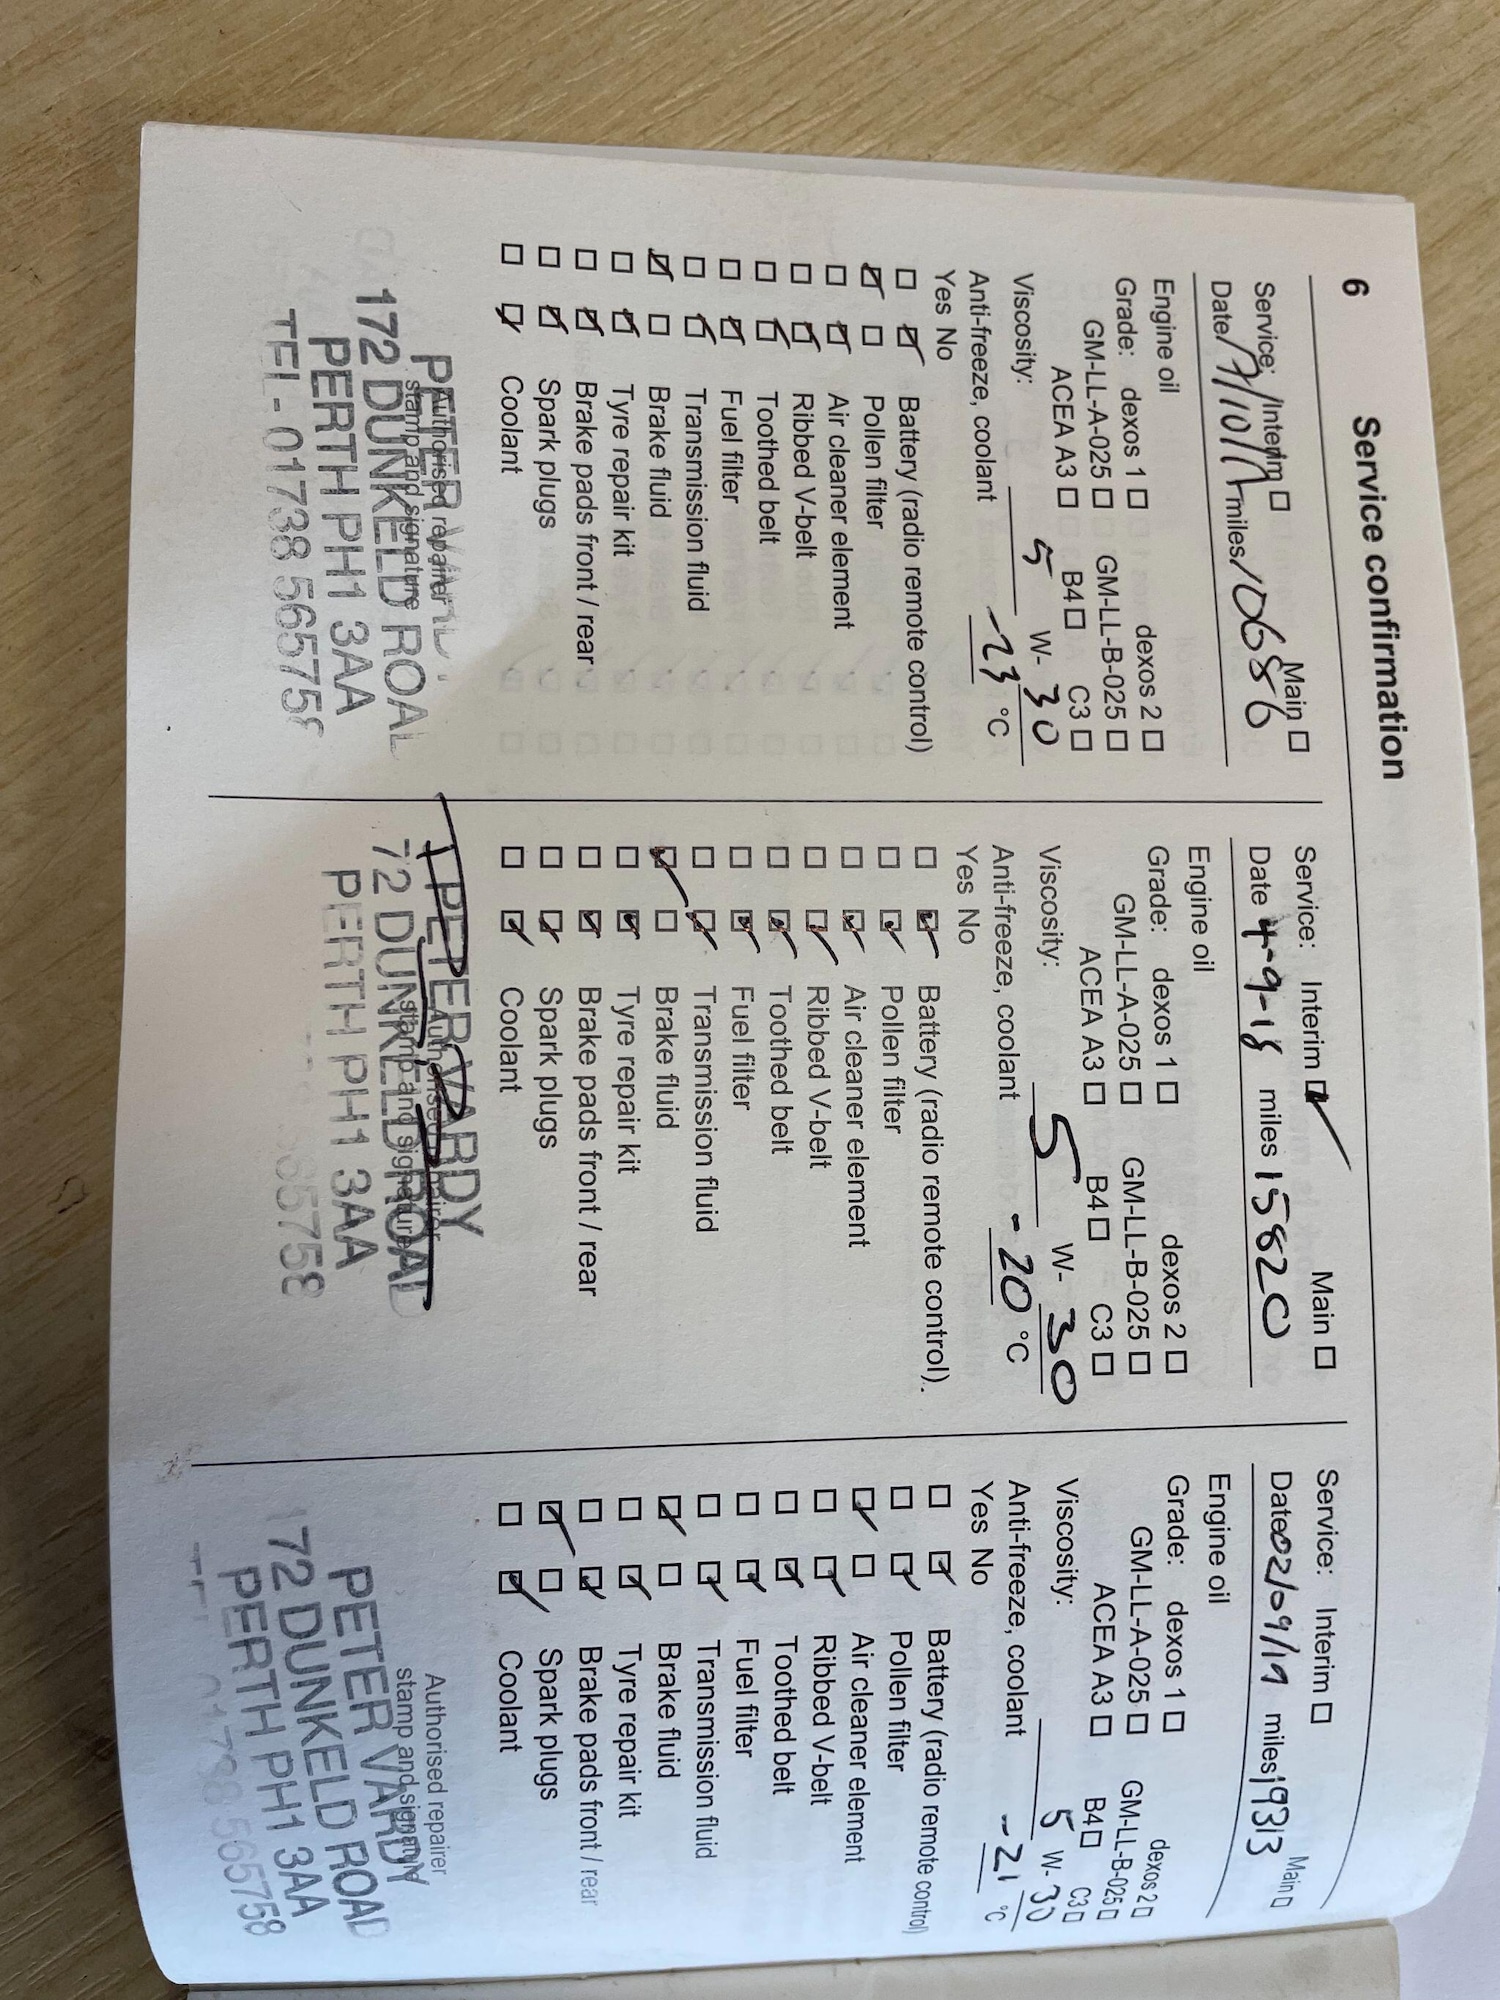 6 Service confirmation
Service: Interim ☐ Main ☐
Date 7/10/17 miles 10686
Engine oil
Grade: dexos 1 ☐ dexos 2 ☐
GM-LL-A-025 ☐ GM-LL-B-025 ☐
ACEA A3 ☐ B4 ☐ C3 ☐
Viscosity: 5 W- 30
Anti-freeze, coolant -23 °C
Yes No
☐ ☑ Battery (radio remote control)
☑ ☐ Pollen filter
☐ ☑ Air cleaner element
☐ ☑ Ribbed V-belt
☐ ☑ Toothed belt
☐ ☑ Fuel filter
☐ ☑ Transmission fluid
☑ ☐ Brake fluid
☐ ☑ Tyre repair kit
☐ ☑ Brake pads front / rear
☐ ☑ Spark plugs
☐ ☑ Coolant
Authorised repairer
stamp and signature
PETER
172 DUNKELD ROAD
PERTH PH1 3AA
TEL - 01738 565758
Service: Interim ☑ Main ☐
Date 4-9-18 miles 15820
Engine oil
Grade: dexos 1 ☐ dexos 2 ☐
GM-LL-A-025 ☐ GM-LL-B-025 ☐
ACEA A3 ☐ B4 ☐ C3 ☐
Viscosity: 5 W- 30
Anti-freeze, coolant -20 °C
Yes No
☐ ☑ Battery (radio remote control).
☐ ☑ Pollen filter
☐ ☑ Air cleaner element
☐ ☑ Ribbed V-belt
☐ ☑ Toothed belt
☐ ☑ Fuel filter
☐ ☑ Transmission fluid
☑ ☐ Brake fluid
☐ ☑ Tyre repair kit
☐ ☑ Brake pads front / rear
☐ ☑ Spark plugs
☐ ☑ Coolant
Authorised repairer
stamp and signature
PETER VARDY
72 DUNKELD ROAD
PERTH PH1 3AA
565758
Service: Interim ☐ Main ☐
Date 02/09/19 miles 19313
Engine oil
Grade: dexos 1 ☐ dexos 2 ☐
GM-LL-A-025 ☐ GM-LL-B-025 ☐
ACEA A3 ☐ B4 ☐ C3 ☐
Viscosity: 5 W- 30
Anti-freeze, coolant -21 °C
Yes No
☐ ☑ Battery (radio remote control)
☐ ☑ Pollen filter
☑ ☐ Air cleaner element
☐ ☑ Ribbed V-belt
☐ ☑ Toothed belt
☐ ☑ Fuel filter
☐ ☑ Transmission fluid
☑ ☐ Brake fluid
☐ ☑ Tyre repair kit
☐ ☑ Brake pads front / rear
☑ ☐ Spark plugs
☐ ☑ Coolant
Authorised repairer
stamp and signature
PETER VARDY
172 DUNKELD ROAD
PERTH PH1 3AA
01738 565758